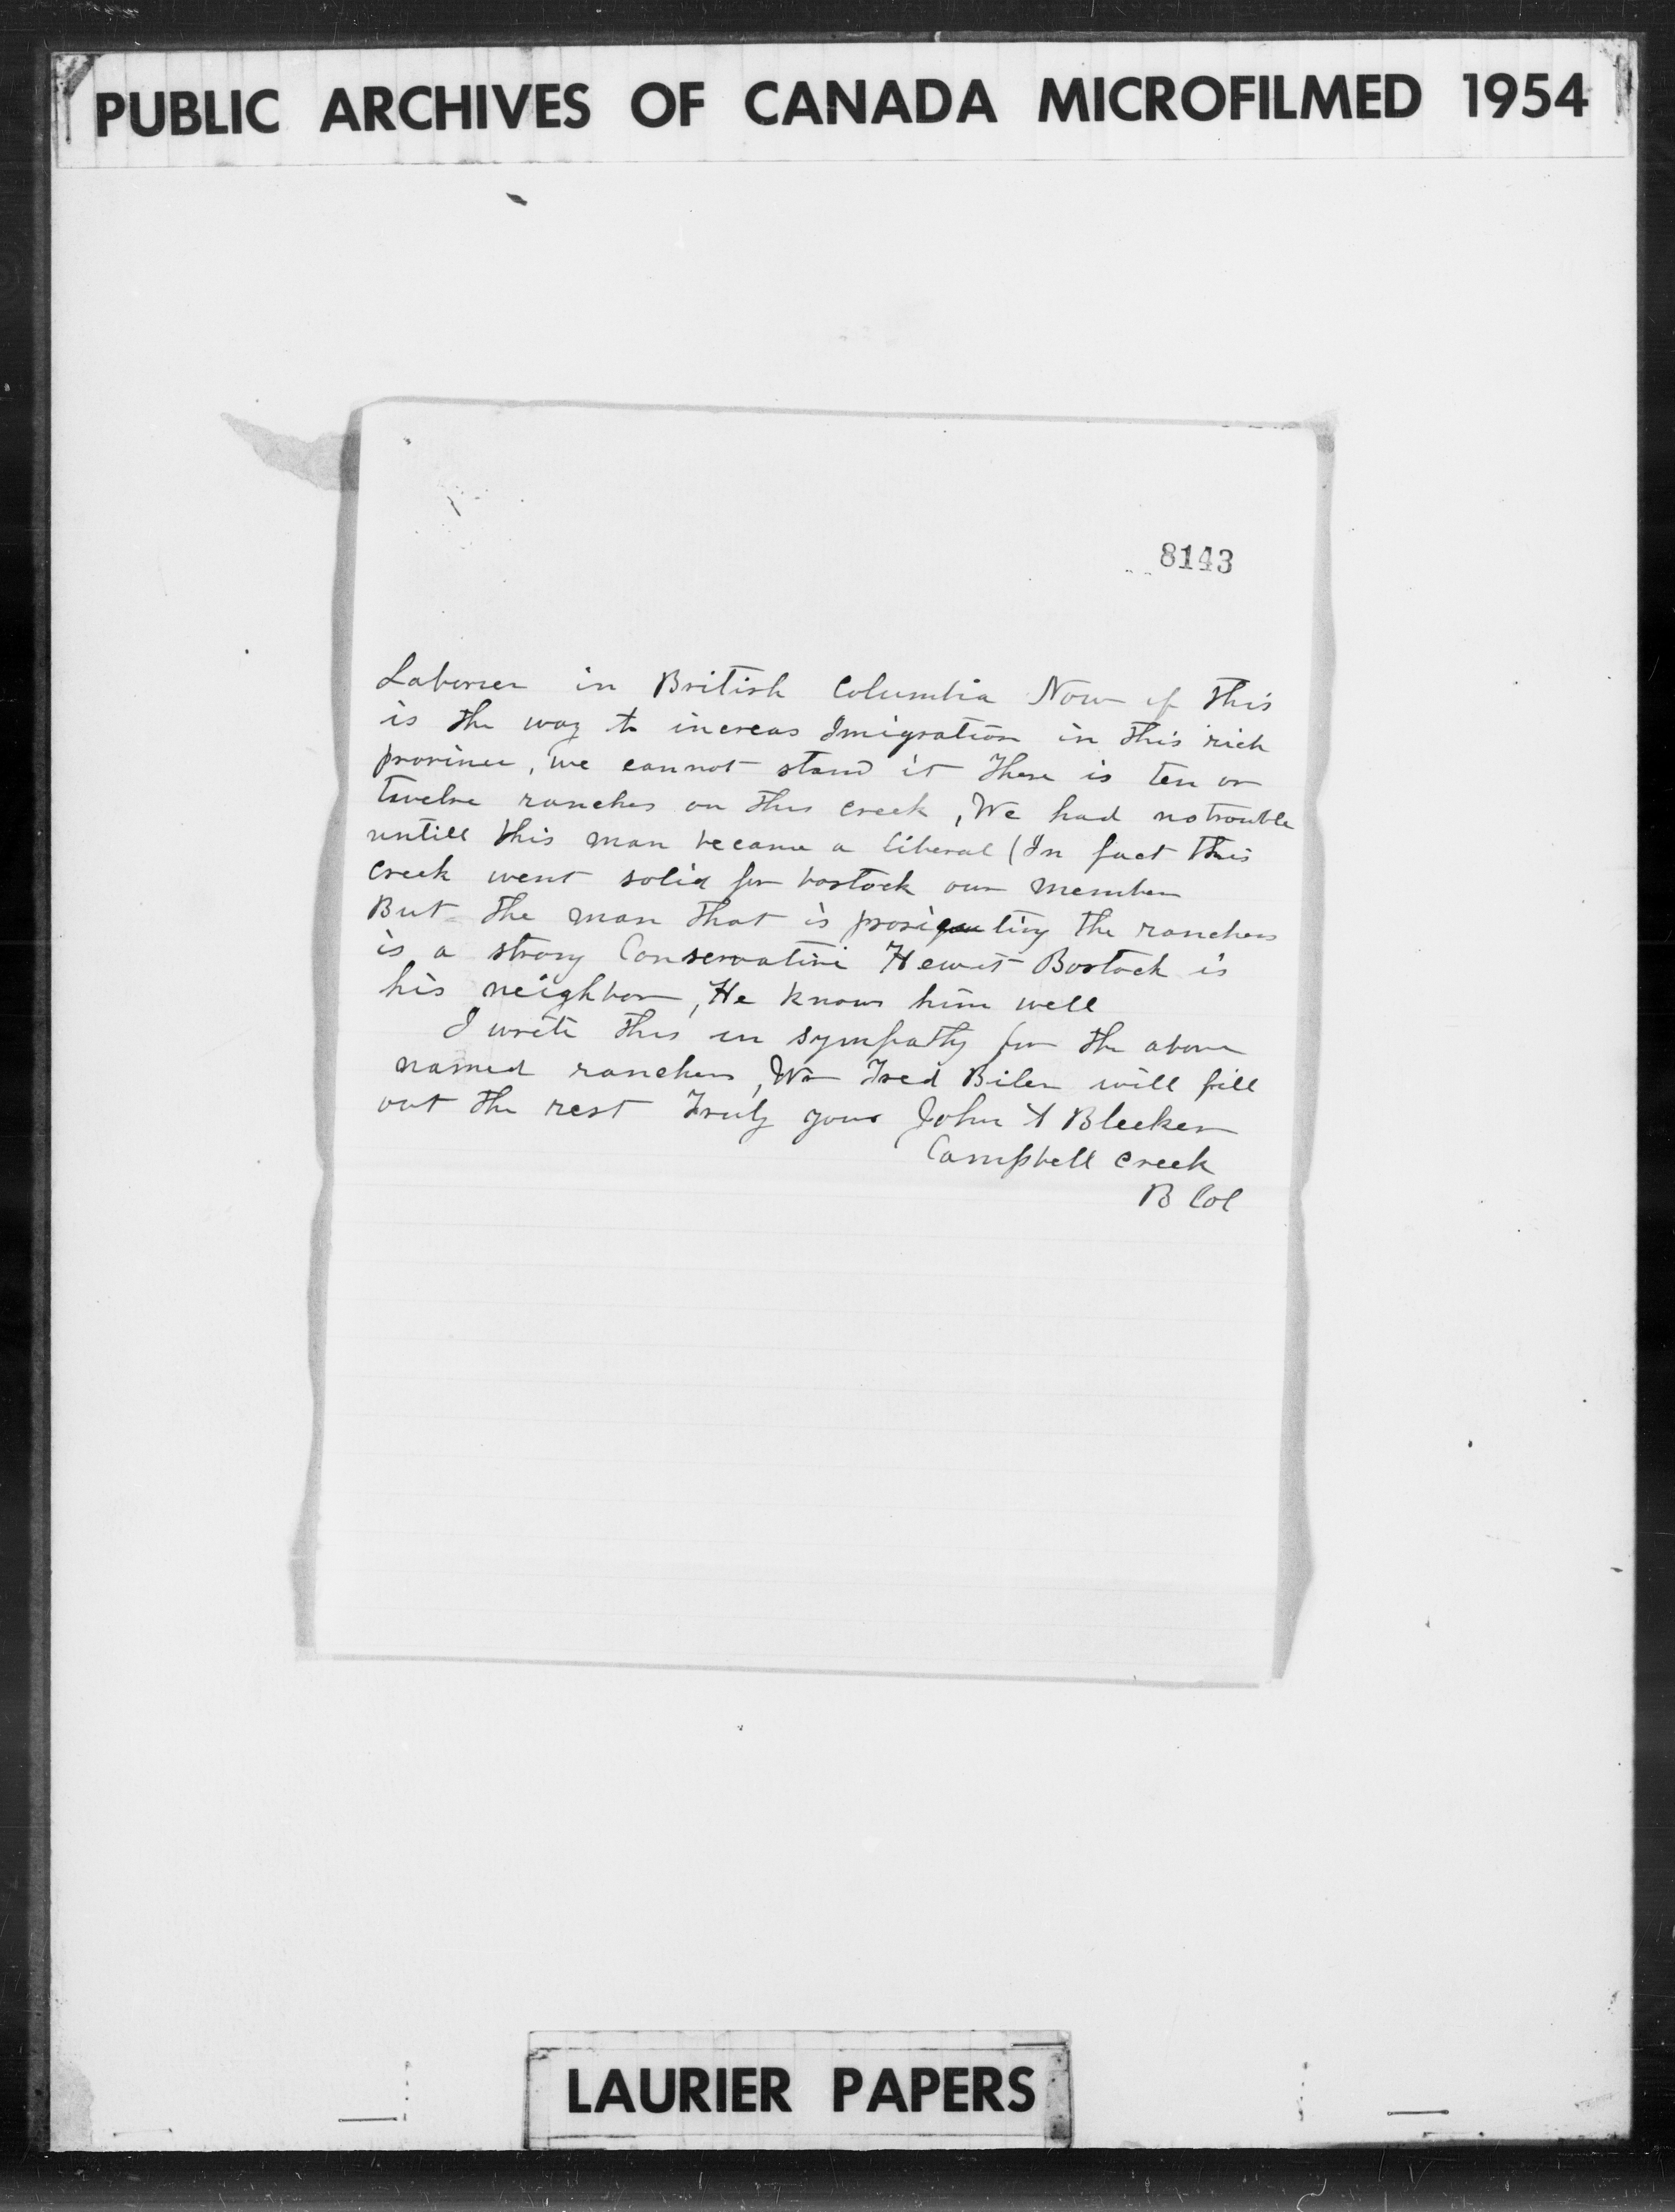 PUBLIC ARCHIVES OF CANADA MICROFILMED 1954
8143
Laborer in British Columbia Now if this
is the way to increas Imigration in this rich
province, we cannot stand it There is ten or
twelve ranches on this creek, We had no trouble
untill this man became a liberal (In fact this
creek went solid for bostock our member
But the man that is prosiquting the ranchers
is a strong Conservative Hewit Bostock is
his neighbor, He knows him well
I write this in sympathy for the above
named ranchers, Wm Fred Biler will fill
out the rest Truly yours John A Bleeker
Campbell Creek
B Col
LAURIER PAPERS